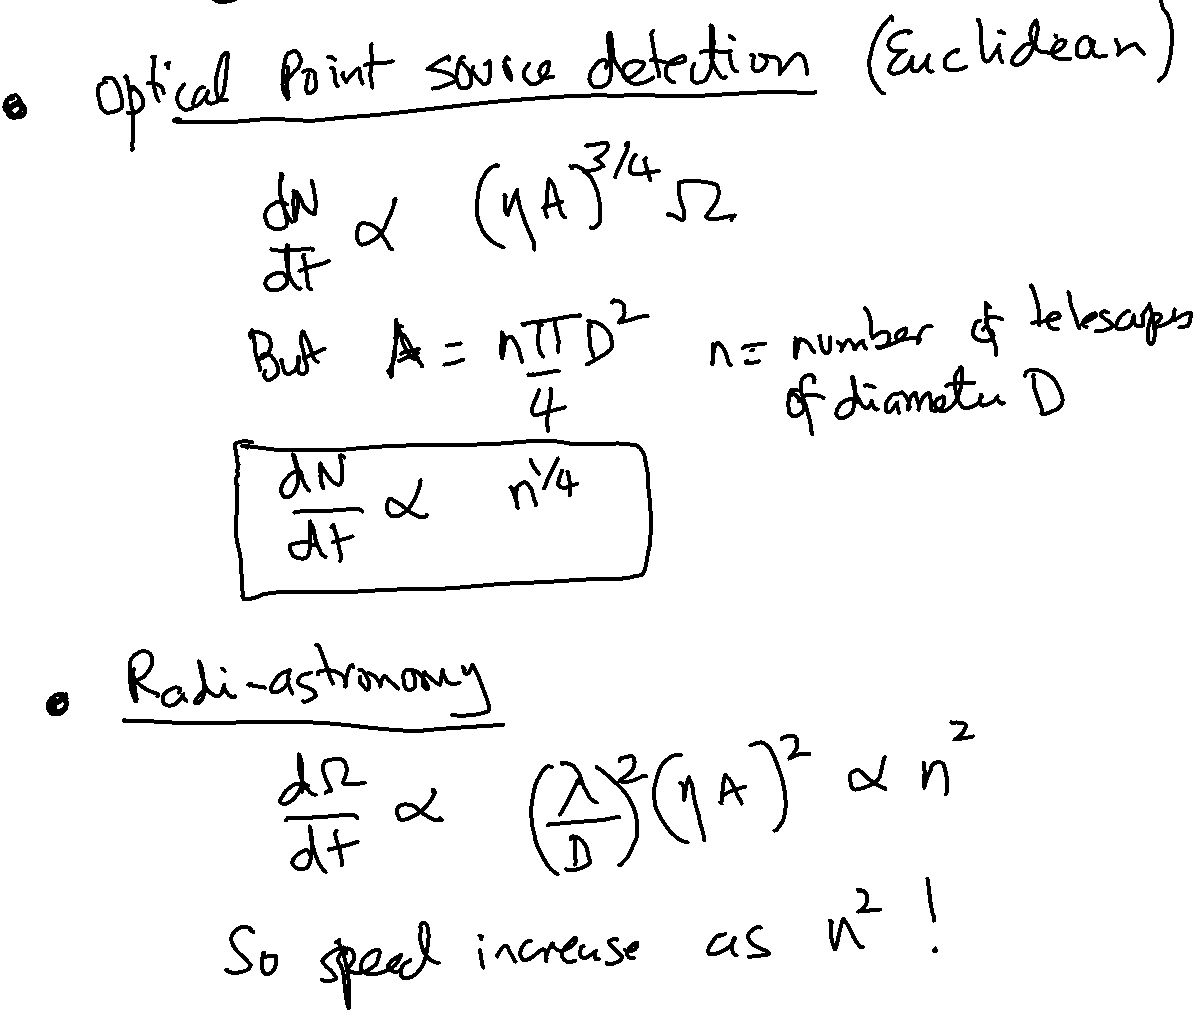 • Optical Point source detection (Euclidean)
dN/dt ∝ (ηA)^3/4 Ω
But A = nπ/4 D^2 n = number of telescopes
of diameter D
dN/dt ∝ n^1/4
• Radi-astronomy
dΩ/dt ∝ (λ/D)^2 (ηA)^2 ∝ n^2
So speed increase as n^2 !